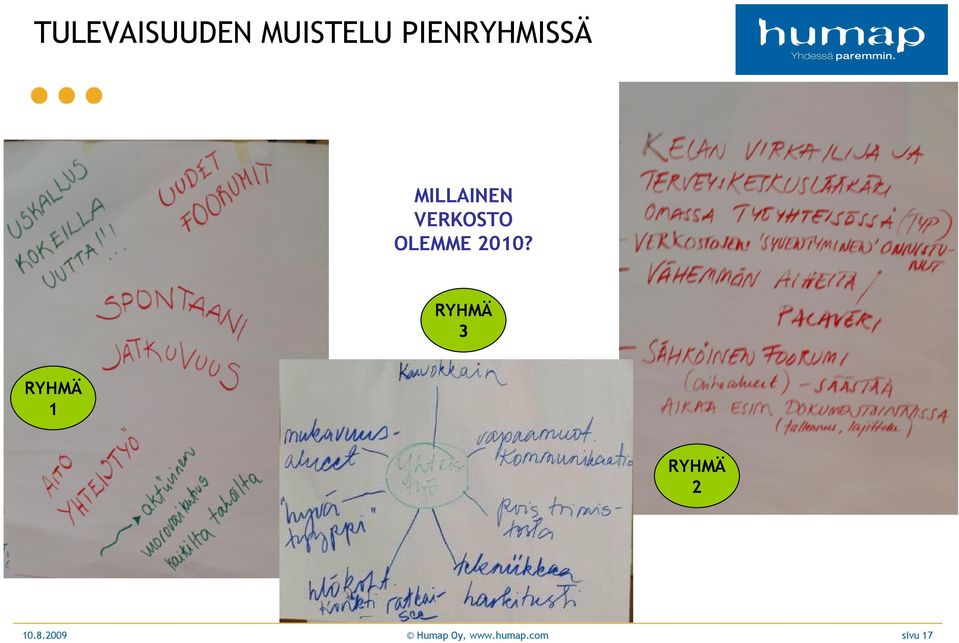 TULEVAISUUDEN MUISTELU PIENRYHMISSÄ
humap
Yhdessä paremmin.
MILLAINEN
VERKOSTO
OLEMME 2010?
RYHMÄ
1
USKALLUS
KOKEILLA
UUTTA!!!...
UUDET
FOORUMIT
SPONTAANI
JATKUVUUS
AITO
YHTEISTYÖ"
aktiivinen
vuorovaikutus
kaikilta tahoilta
RYHMÄ
3
Kasvokkain
mukavuus-
alueet
Yhteis
työ
vapaamuot.
Kommunikaatio
"hyvä
tyyppi"
pois toimis-
tosta
hlökoht.
Konkti
ratkai-
see
tekniikkaa
harkitusti
KELAN VIRKAILIJA JA
TERVEYSKESKUSLÄÄKÄRI
OMASSA TYÖYHTEISÖSSÄ (TYP)
- VERKOSTOJEN 'SYVENTYMINEN' ONNISTU-
NUT
- VÄHEMMÄN AIHEITA /
PALAVERI
- SÄHKÖINEN FOORUMI
(aihealueet) - SÄÄSTÄÄ
AIKAA ESIM. DOKUMENTOINNISSA
(tallennus, lajittelu)
RYHMÄ
2
10.8.2009
© Humap Oy, www.humap.com
sivu 17